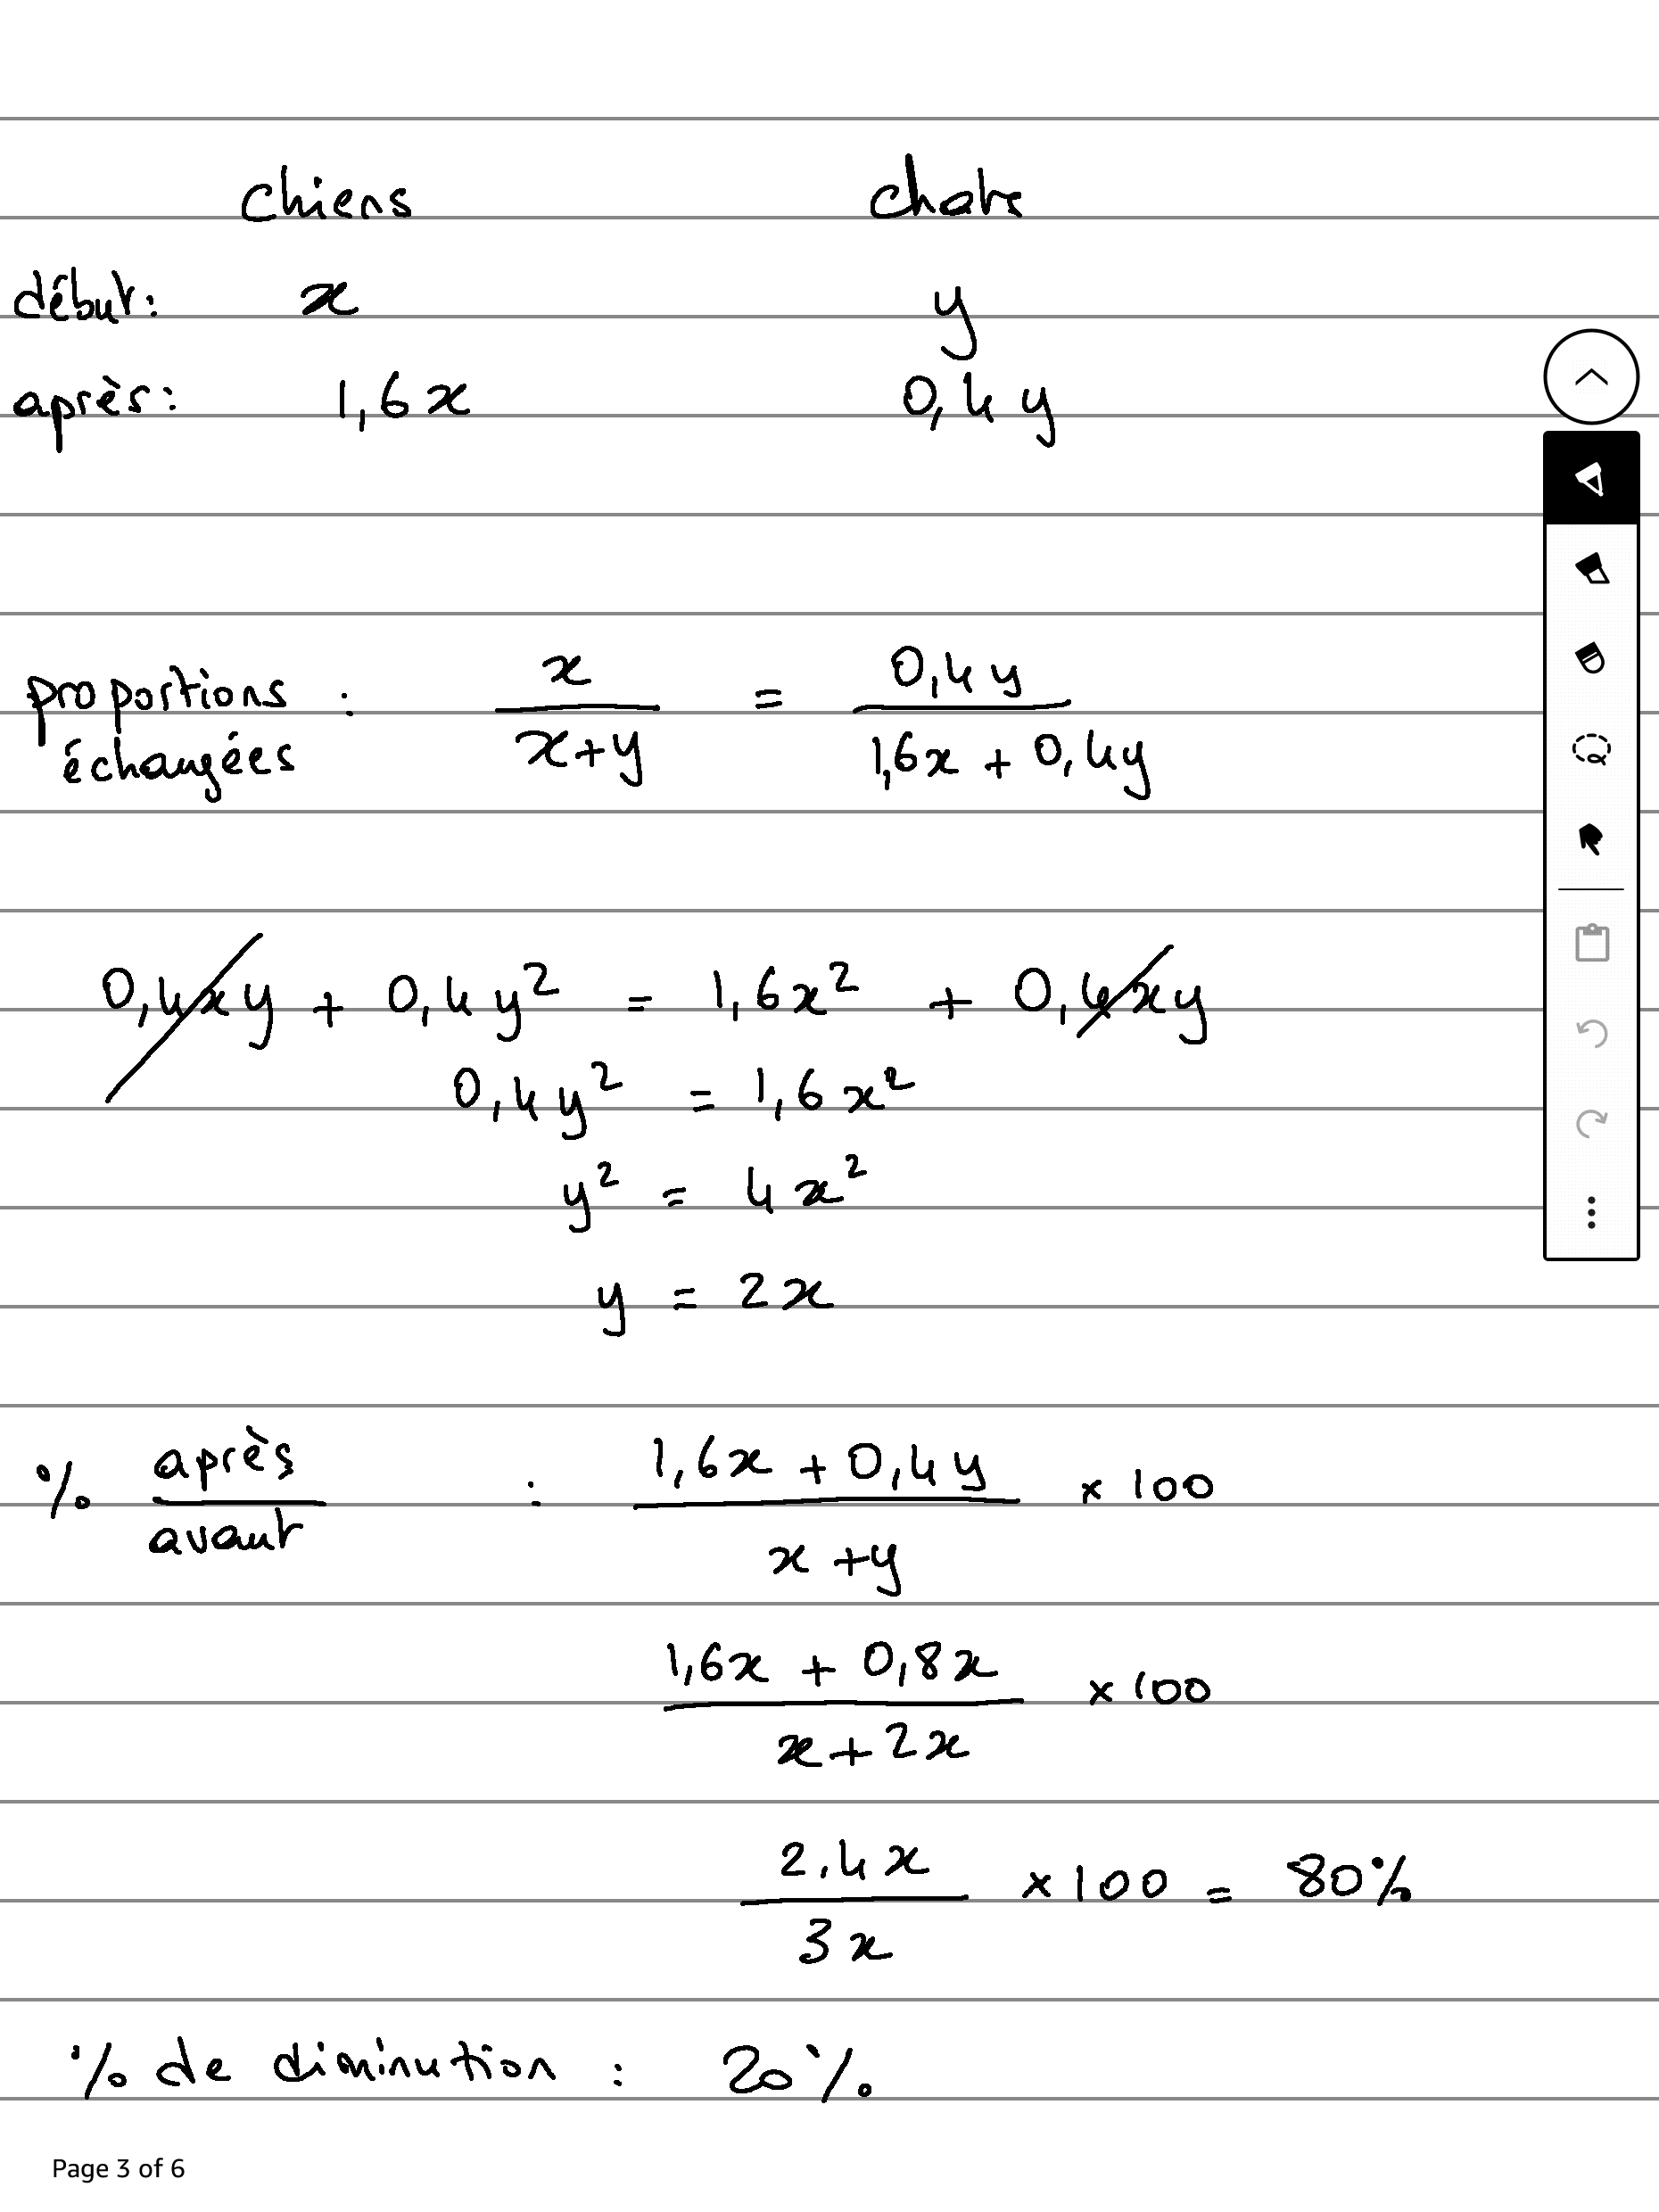 chiens chats
début: x y
après: 1,6x 0,4y
proportions échangées : x/(x+y) = 0,4y/(1,6x + 0,4y)
0,4xy + 0,4y² = 1,6x² + 0,4xy
0,4y² = 1,6x²
y² = 4x²
y = 2x
% après/avant : (1,6x + 0,4y)/(x+y) × 100
(1,6x + 0,8x)/(x+2x) × 100
2,4x/3x × 100 = 80%
% de diminution : 20%
Page 3 of 6